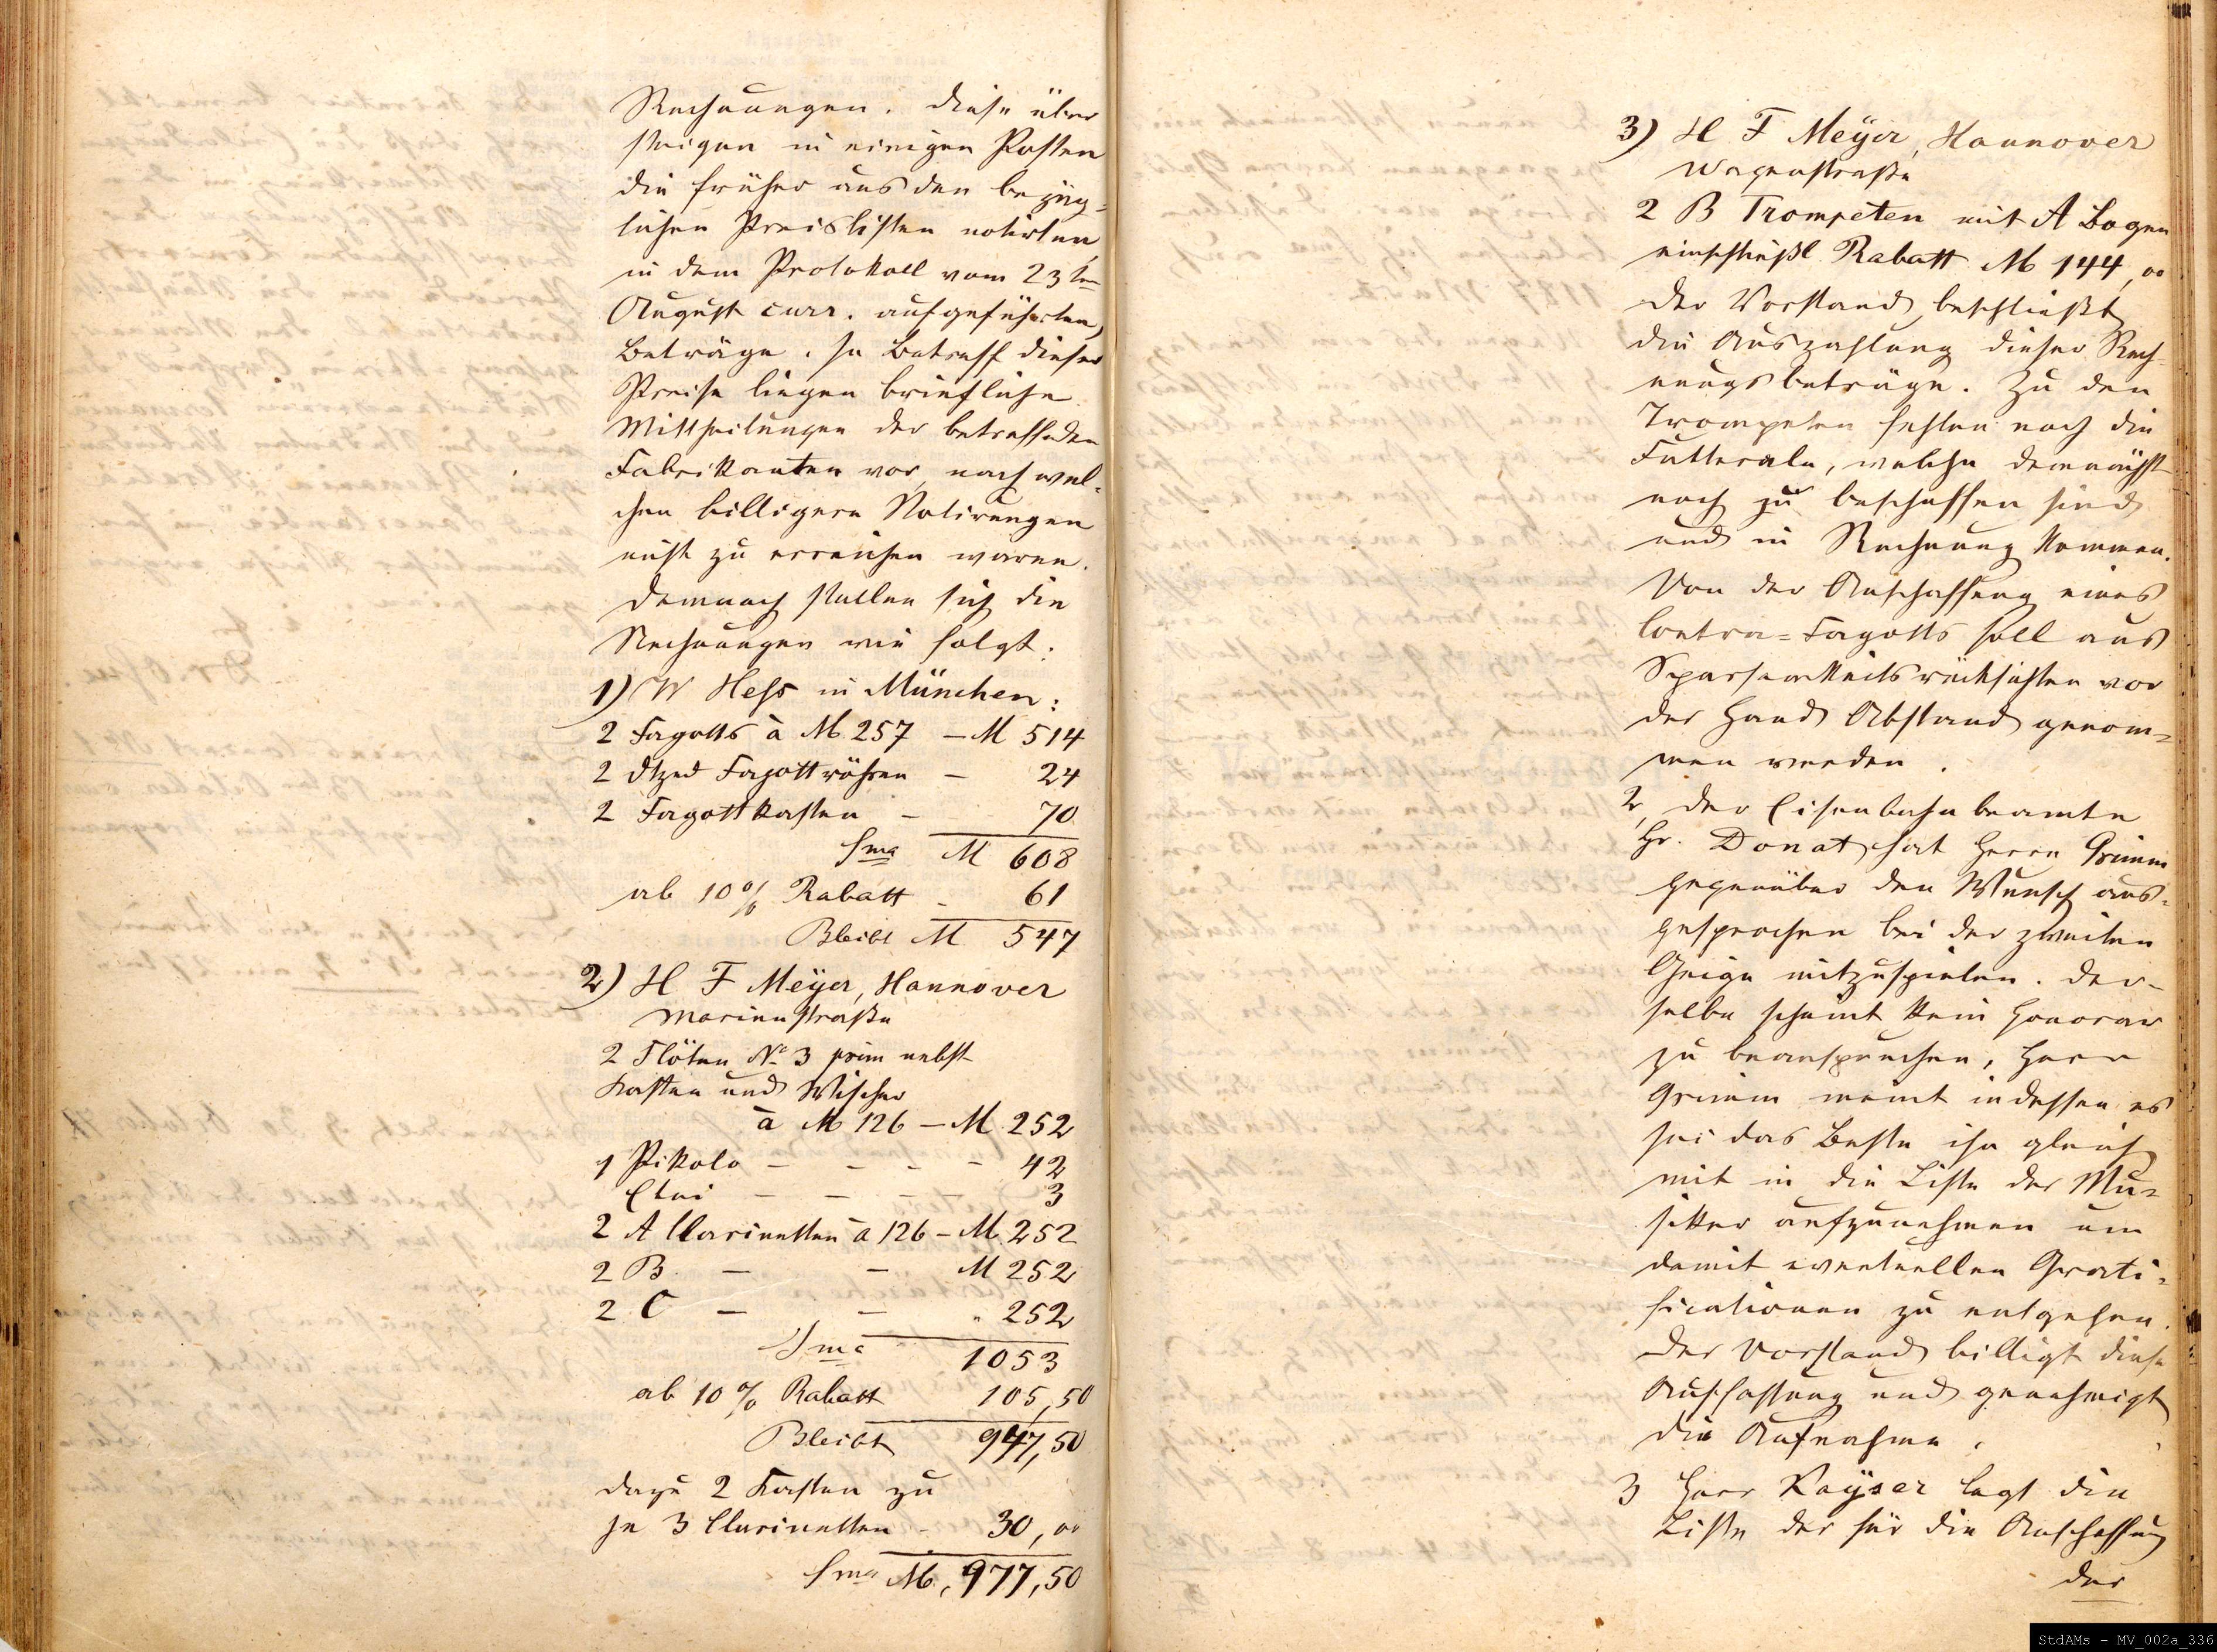 Rechnungen. Diese über
steigen in einigen Posten
die früher aus den bezüg-
lichen Preislisten notirten
in dem Protokoll vom 23ten
August curr. aufgeführten
Beträge. In Betreff dieser
Preise liegen briefliche
Mittheilungen der betreffenden
Fabrikanten vor, nach wel-
chen billigere Notirungen
nicht zu erreichen waren.
Demnach stellen sich die
Rechnungen wie folgt:
1) W Hess in München:
2 Fagotts à M 257 — M 514
2 Dtzed Fagottröhren — 24
2 Fagottkasten — 70
Sma M 608
ab 10% Rabatt - 61
Bleibt M 547
2) H F Meÿer, Hannover
Marienstraße
2 Flöten No 3 prim nebst
Kasten und Wischer
à M 126 — M 252
1 Pikolo — - - - 42
Etui — — - — 3
2 A Clarinetten à 126 — M 252
2 B. — — M 252
2 C — — " 252
Sma 1053
ab 10% Rabatt 105,50
Bleibt 947,50
dazu 2 Kasten zu
je 3 Clarinetten - 30,00
Sma M. 977,50
3) H F Meÿer, Hannover
Wagenstraße
2 B Trompeten mit A Bogen
einschließl. Rabatt M 144,00
Der Vorstand beschließt
die Auszahlung dieser Rech-
nungsbeträge. Zu den
Trompeten fehlen noch die
Futterale, welche demnächst
noch zu beschaffen sind
und in Rechnung kommen.
Von der Anschaffung eines
Contra-Fagotts soll aus
Sparsamkeitsrücksichten vor
der Hand Abstand genom-
men werden.
2, Der Eisenbahnbeamte
Hr. Donat hat Herrn Grimm
gegenüber den Wunsch aus-
gesprochen bei der zweiten
Geige mitzuspielen. Der-
selbe scheint kein Honorar
zu beanspruchen, Herr
Grimm meint indessen es
sei das Beste ihn gleich
mit in die Liste der Mu-
siker aufzunehmen um
damit eventuellen Grati-
ficationen zu entgehen.
Der Vorstand billigt diese
Auffassung und genehmigt
die Aufnahme.
3 Herr Kaÿser legt die
Liste der für die Anschaffung
der
StdAMs - MV_002a_336